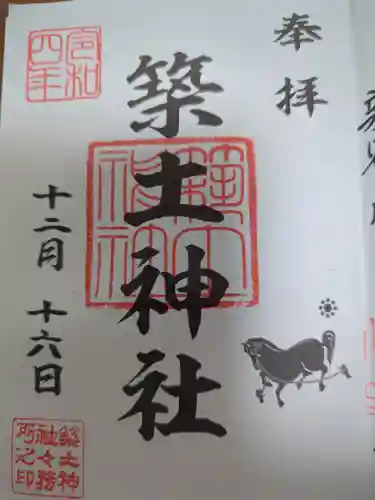 奉拝
築土神社
令和四年
十二月十六日
築土神社
築土神社々務所之印